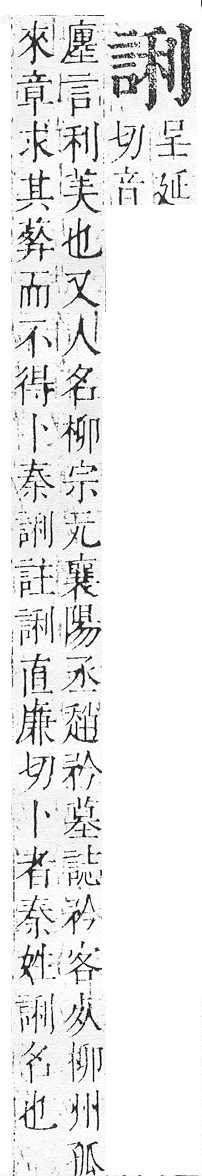 誗
呈延
切音
廛言利美也又人名柳宗元襄陽丞趙矜墓誌矜客死柳州孤
來章求其葬而不得卜秦誗註誗直廉切卜者秦姓誗名也